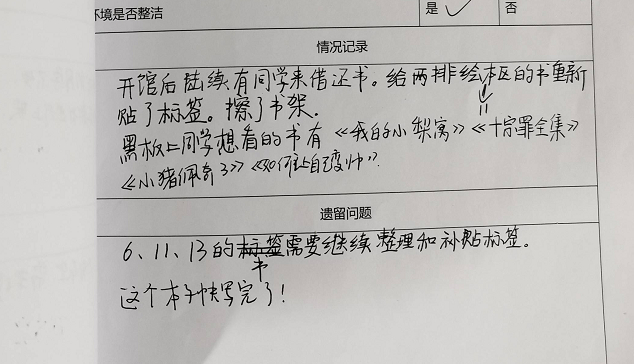 环境是否整洁 是 ✓ 否
情况记录
开馆后陆续有同学来借还书。给两排绘本区的书重新
贴了标签。擦了书架.
黑板上同学想看的书有《我的小梨窝》《十宗罪全集》
《小猪佩奇3》《如何让自己变帅》
遗留问题
6、11、13的书需要继续整理和补贴标签。
这个本子快写完了!